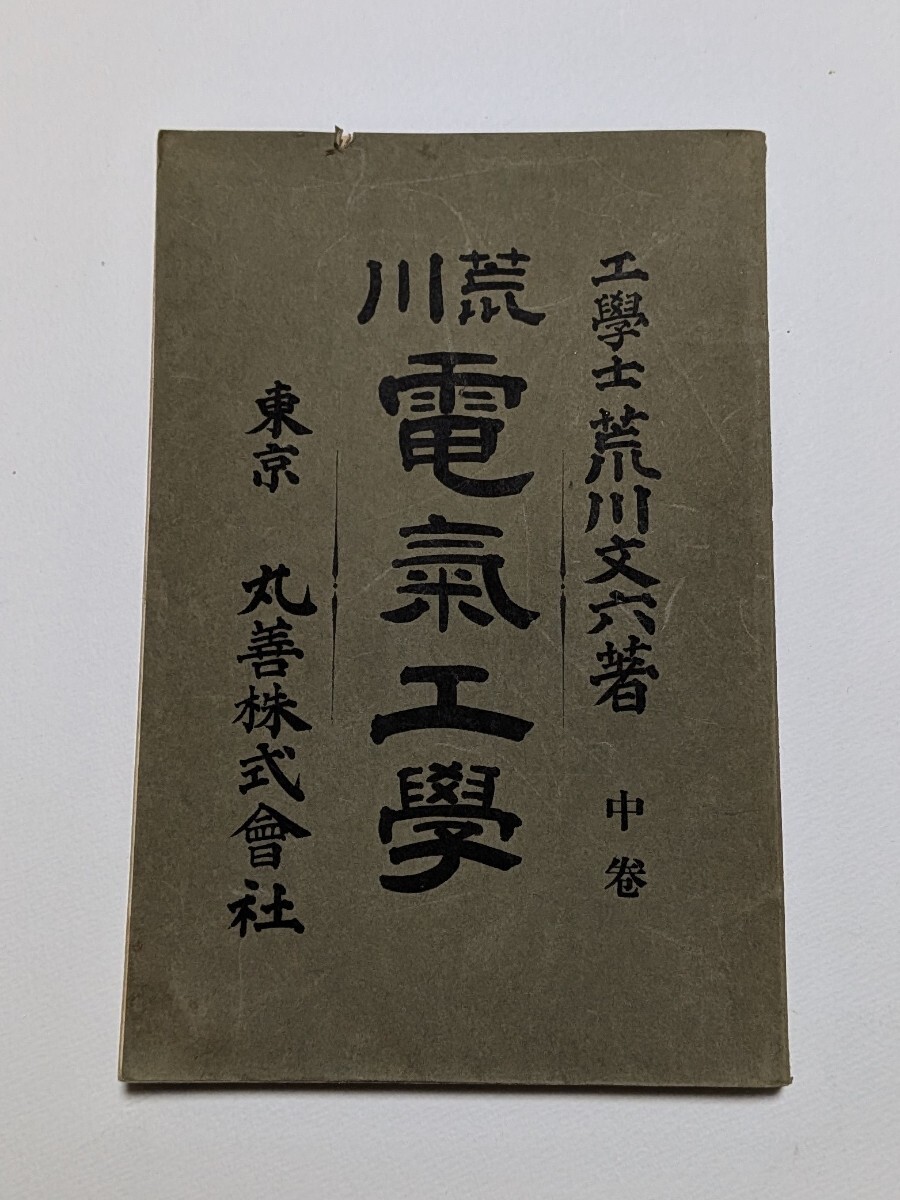 工學士 荒川文六著 中卷
荒川
電氣工學
東京 丸善株式會社